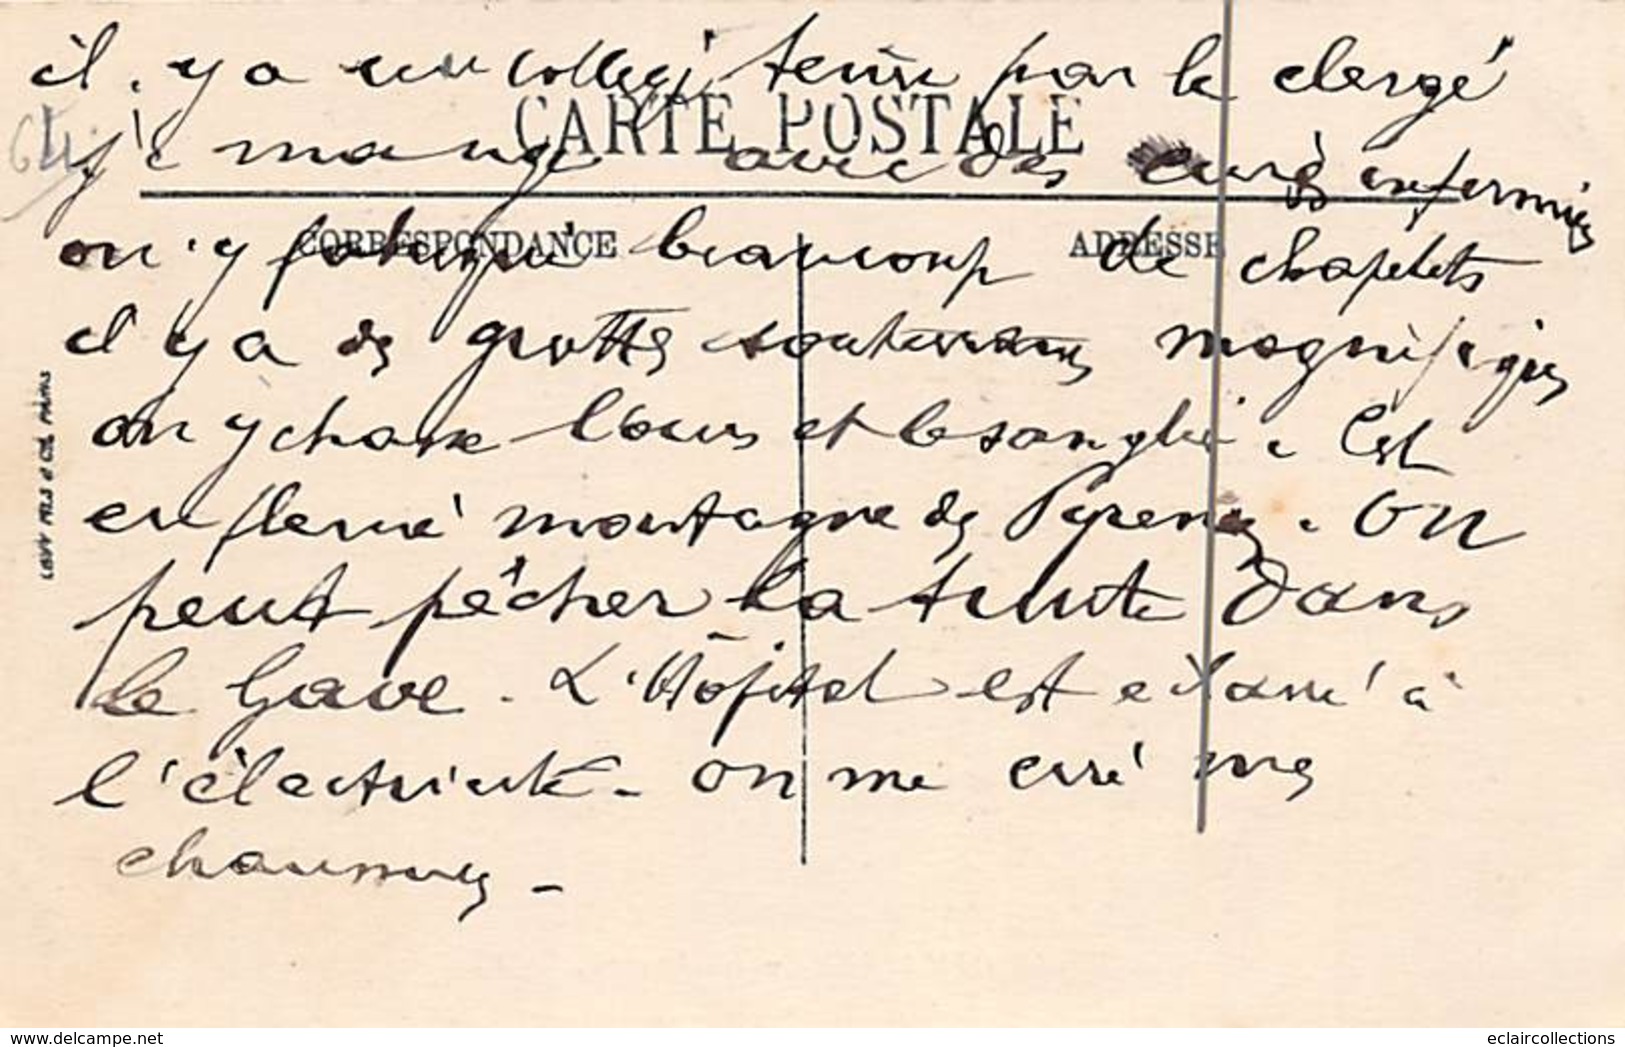 il y a un collège tenu par le clergé
CARTE POSTALE
64
je mange avec des curés infirmiers
CORRESPONDANCE
ADRESSE
on y fabrique beaucoup de chapelets
il y a des grottes souterraines magnifiques
on y chasse l'ours et le sanglié. C'est
en pleine montagne des Pyrenees. On
peut pêcher la truite dans
le Gave. L'Hôpital est éclairé à
l'électricité - on me ciré mes
chaussures -
LEVY FILS & CIE, PARIS
www.delcampe.net
eclaircollections